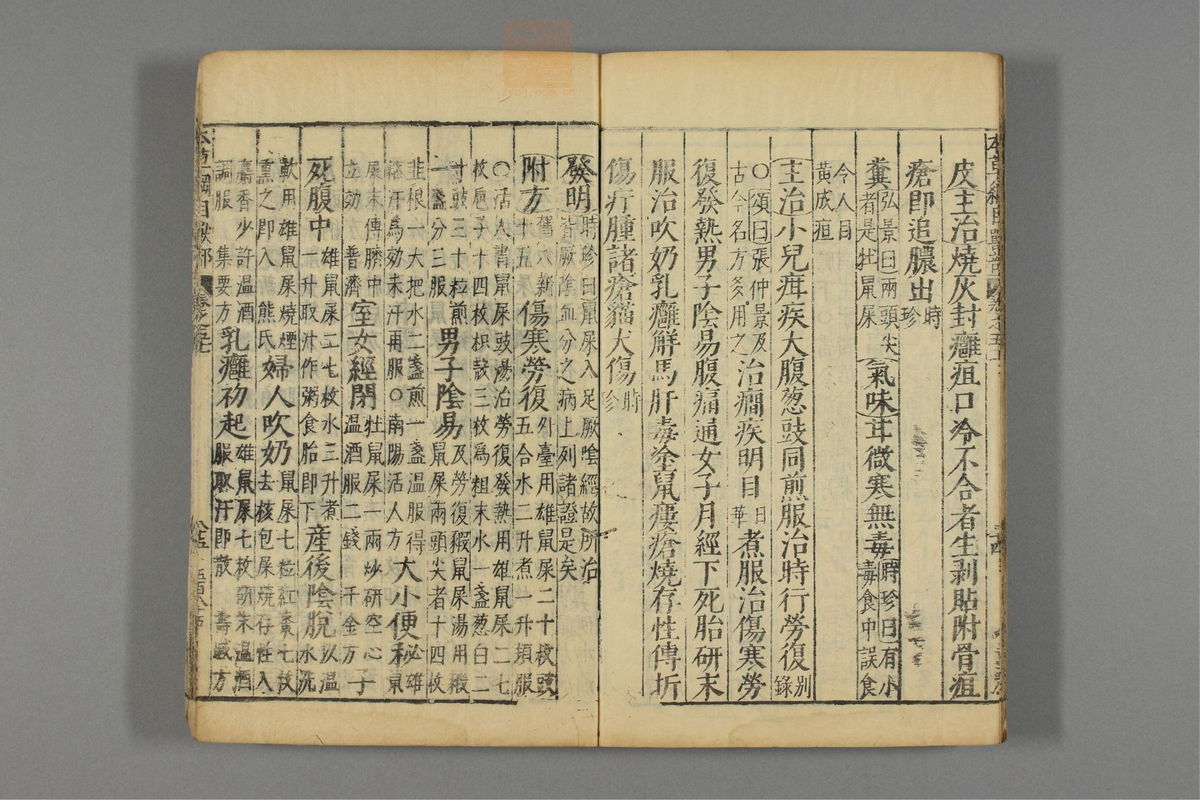 皮主治燒灰封癰疽口冷不合者生剥貼附骨疽
瘡即追膿出時珍
糞弘景曰兩頭尖者是牡鼠屎氣味甘微寒無毒時珍曰有小毒食中誤食
令人目黄成疸
主治小兒疳疾大腹葱豉同煎服治時行勞復别錄
○頌曰張仲景及古今名方多用之治癇疾明目日華煮服治傷寒勞
復發熱男子陰易腹痛通女子月經下死胎研末
服治吹奶乳癰解馬肝毒塗鼠瘻瘡燒存性傅折
傷疔腫諸瘡猫犬傷時珍
發明時珍曰鼠屎入足厥陰經故所治皆厥陰血分之病上列諸證是矣
附方舊八新十五傷寒勞復外臺用雄鼠屎二十枚豉五合水二升煮一升頓服
○活人書鼠屎豉湯治勞復發熱用雄鼠屎二七枚巵子十四枚枳殼三枚爲粗末水一盞葱白二
寸豉三十粒煎一盞分三服男子陰易及勞復猳鼠屎湯用猳鼠屎兩頭尖者十四枚
韭根一大把水二盞煎一盞温服得粘汗爲効未汗再服○南陽活人方大小便秘雄鼠
屎末傅臍中立効普濟方室女經閉牡鼠屎一兩炒研空心温酒服二錢千金方子
死腹中雄鼠屎二七枚水三升煮一升取汁作粥食胎即下產後陰脫以温水洗
軟用雄鼠屎燒煙熏之即入熊氏婦人吹奶鼠屎七粒紅棗七枚去核包屎燒存性入
麝香少許温酒調服集要方乳癰初起雄鼠屎七枚研末温酒服取汗即散壽域方